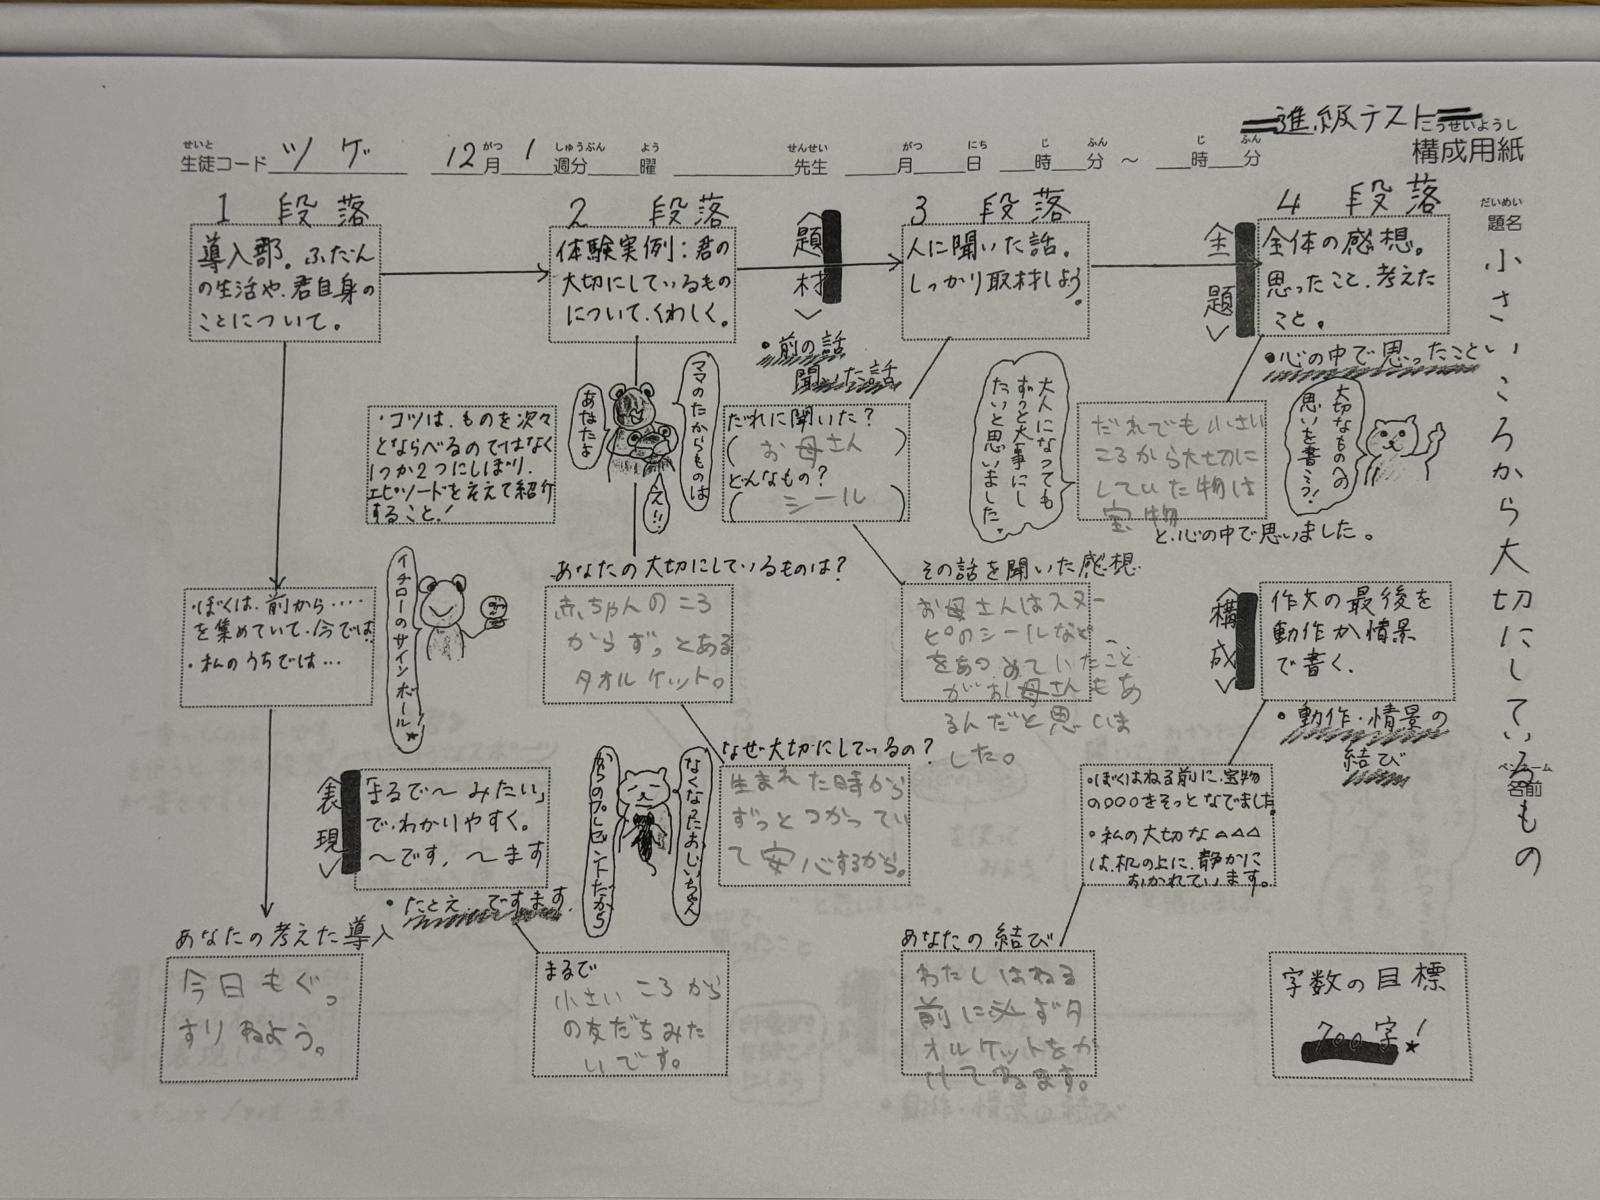 進級テスト
こうせいようし
構成用紙
せいと
生徒コード ツゲ
12 がつ 月 1 しゅうぶん 週分 よう 曜
せんせい
先生
がつ 月 にち 日 じ 時 ふん 分 ～ じ 時 ふん 分
だいめい
題名
小さいころから大切にしているもの
ペンネーム
名前
1 段落
導入部。ふだん
の生活や、君自身の
ことについて。
・ぼくは、前から‥‥
を集めていて、今では
・私のうちでは…
イチローのサインボール!
あなたの考えた導入
今日もぐっ
すりねよう。
2 段落
体験実例：君の
大切にしているもの
について、くわしく。
・コツは、ものを次々
とならべるのではなく
1つか2つにしぼり、
エピソードをそえて紹介
すること!
ママのたからものは
あなたよ
え!!
あなたの大切にしているものは?
赤ちゃんのころ
からずっとある
タオルケット。
なぜ大切にしているの?
生まれた時から
ずっとつかってい
て安心するから。
なくなったおじいちゃん
からのプレゼントだから
〈表現〉
「まるで～みたい」
で、わかりやすく。
～です、～ます
・たとえ、ですます、
まるで
小さいころから
の友だちみた
いです。
〈題材〉
・前の話
聞いた話
3 段落
人に聞いた話。
しっかり取材しよう。
だれに聞いた?
(お母さん)
どんなもの?
(シール)
大人になっても
ずっと大事にし
たいと思いました。
その話を聞いた感想
お母さんはスヌー
ピのシールなど
をあつめていたこと
がお母さんもあ
るんだと思いま
した。
〈主題〉
4 段落
全体の感想。
思ったこと、考えた
こと。
・心の中で思ったこと
だれでも小さい
ころから大切に
していた物は
宝物
と、心の中で思いました。
大切なものへの
思いを書こう!
〈構成〉
作文の最後を
動作か情景
で書く。
・動作・情景の
結び
・ぼくはねる前に、宝物
の○○○をそっとなでました。
・私の大切な△△△
は、机の上に、静かに
おかれています。
あなたの結び
わたしはねる
前に必ずタ
オルケットをか
けてねます。
字数の目標
700字!